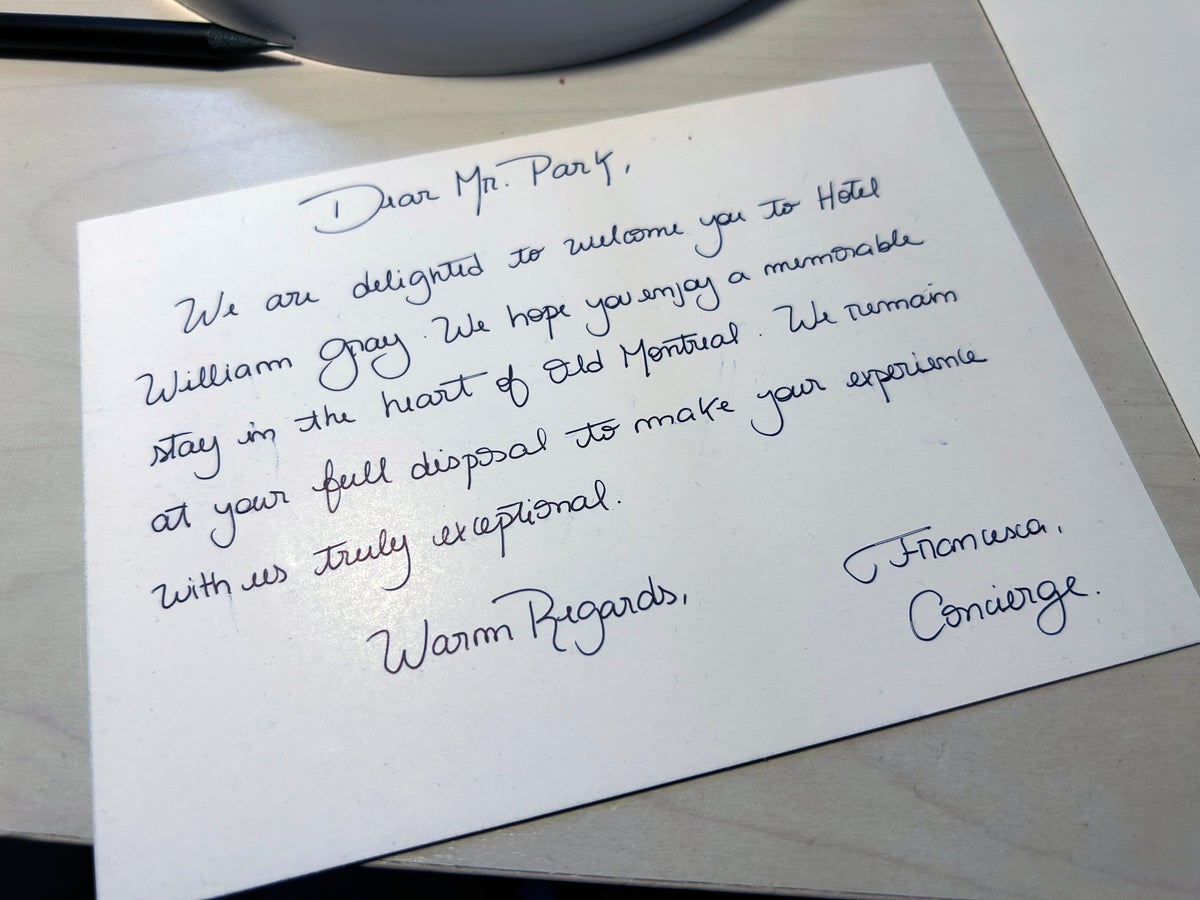 Dear Mr. Park,
We are delighted to welcome you to Hotel
William Gray. We hope you enjoy a memorable
stay in the heart of Old Montreal. We remain
at your full disposal to make your experience
with us truly exceptional.
Warm Regards,
Francesca,
Concierge.